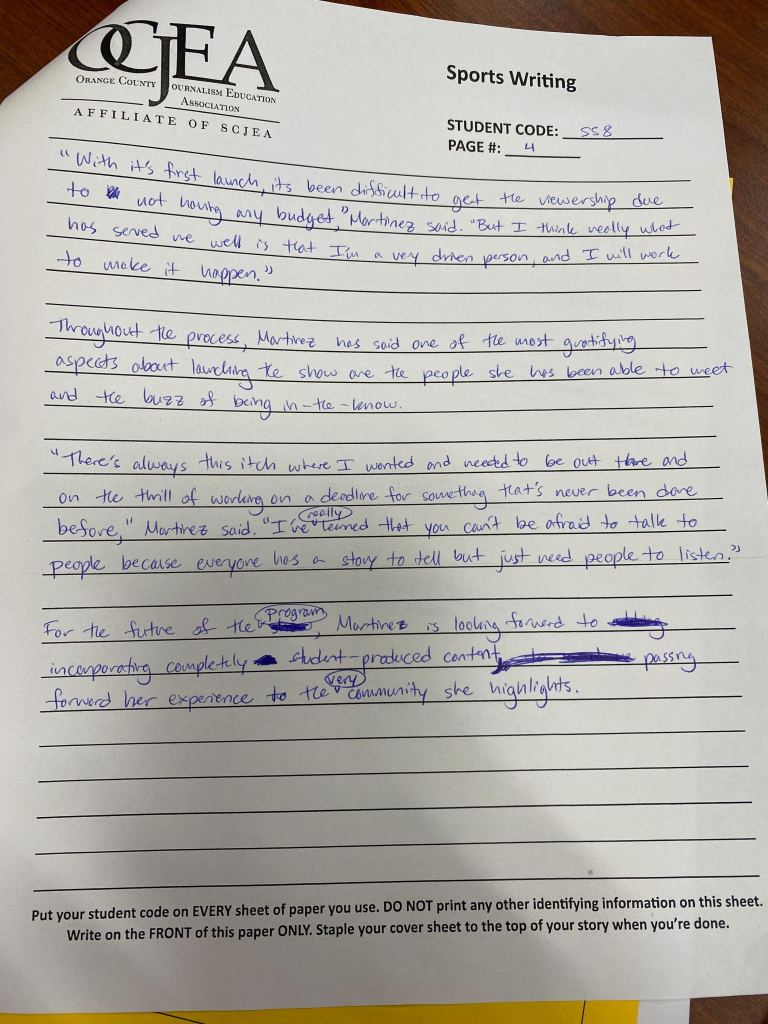 OCJEA
ORANGE COUNTY JOURNALISM EDUCATION
ASSOCIATION
AFFILIATE OF SCJEA
Sports Writing
STUDENT CODE: SS8
PAGE #: 4
"With it's first launch, its been difficult to get the viewership due
to not having any budget," Martinez said. "But I think really what
has served me well is that I'm a very driven person, and I will work
to make it happen."
Throughout the process, Martinez has said one of the most gratifying
aspects about launching the show are the people she has been able to meet
and the buzz of being in-the-know.
"There's always this itch where I wanted and needed to be out there and
on the thrill of working on a deadline for something that's never been done
before," Martinez said. "I've really learned that you can't be afraid to talk to
people because everyone has a story to tell but just need people to listen."
For the future of the program, Martinez is looking forward to
incorporating completely student-produced content, passing
forward her experience to the very community she highlights.
Put your student code on EVERY sheet of paper you use. DO NOT print any other identifying information on this sheet.
Write on the FRONT of this paper ONLY. Staple your cover sheet to the top of your story when you're done.